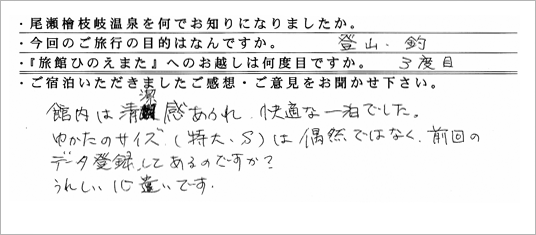 ・尾瀬檜枝岐温泉を何でお知りになりましたか。
・今回のご旅行の目的はなんですか。 登山、釣
・『旅館ひのえまた』へのお越しは何度目ですか。 3度目
・ご宿泊いただきましたご感想・ご意見をお聞かせ下さい。
館内は清潔感あふれ、快適な一泊でした。
ゆかたのサイズ、(特大、S)は偶然ではなく、前回の
データ登録してあるのですか?
うれしい心遣いです。